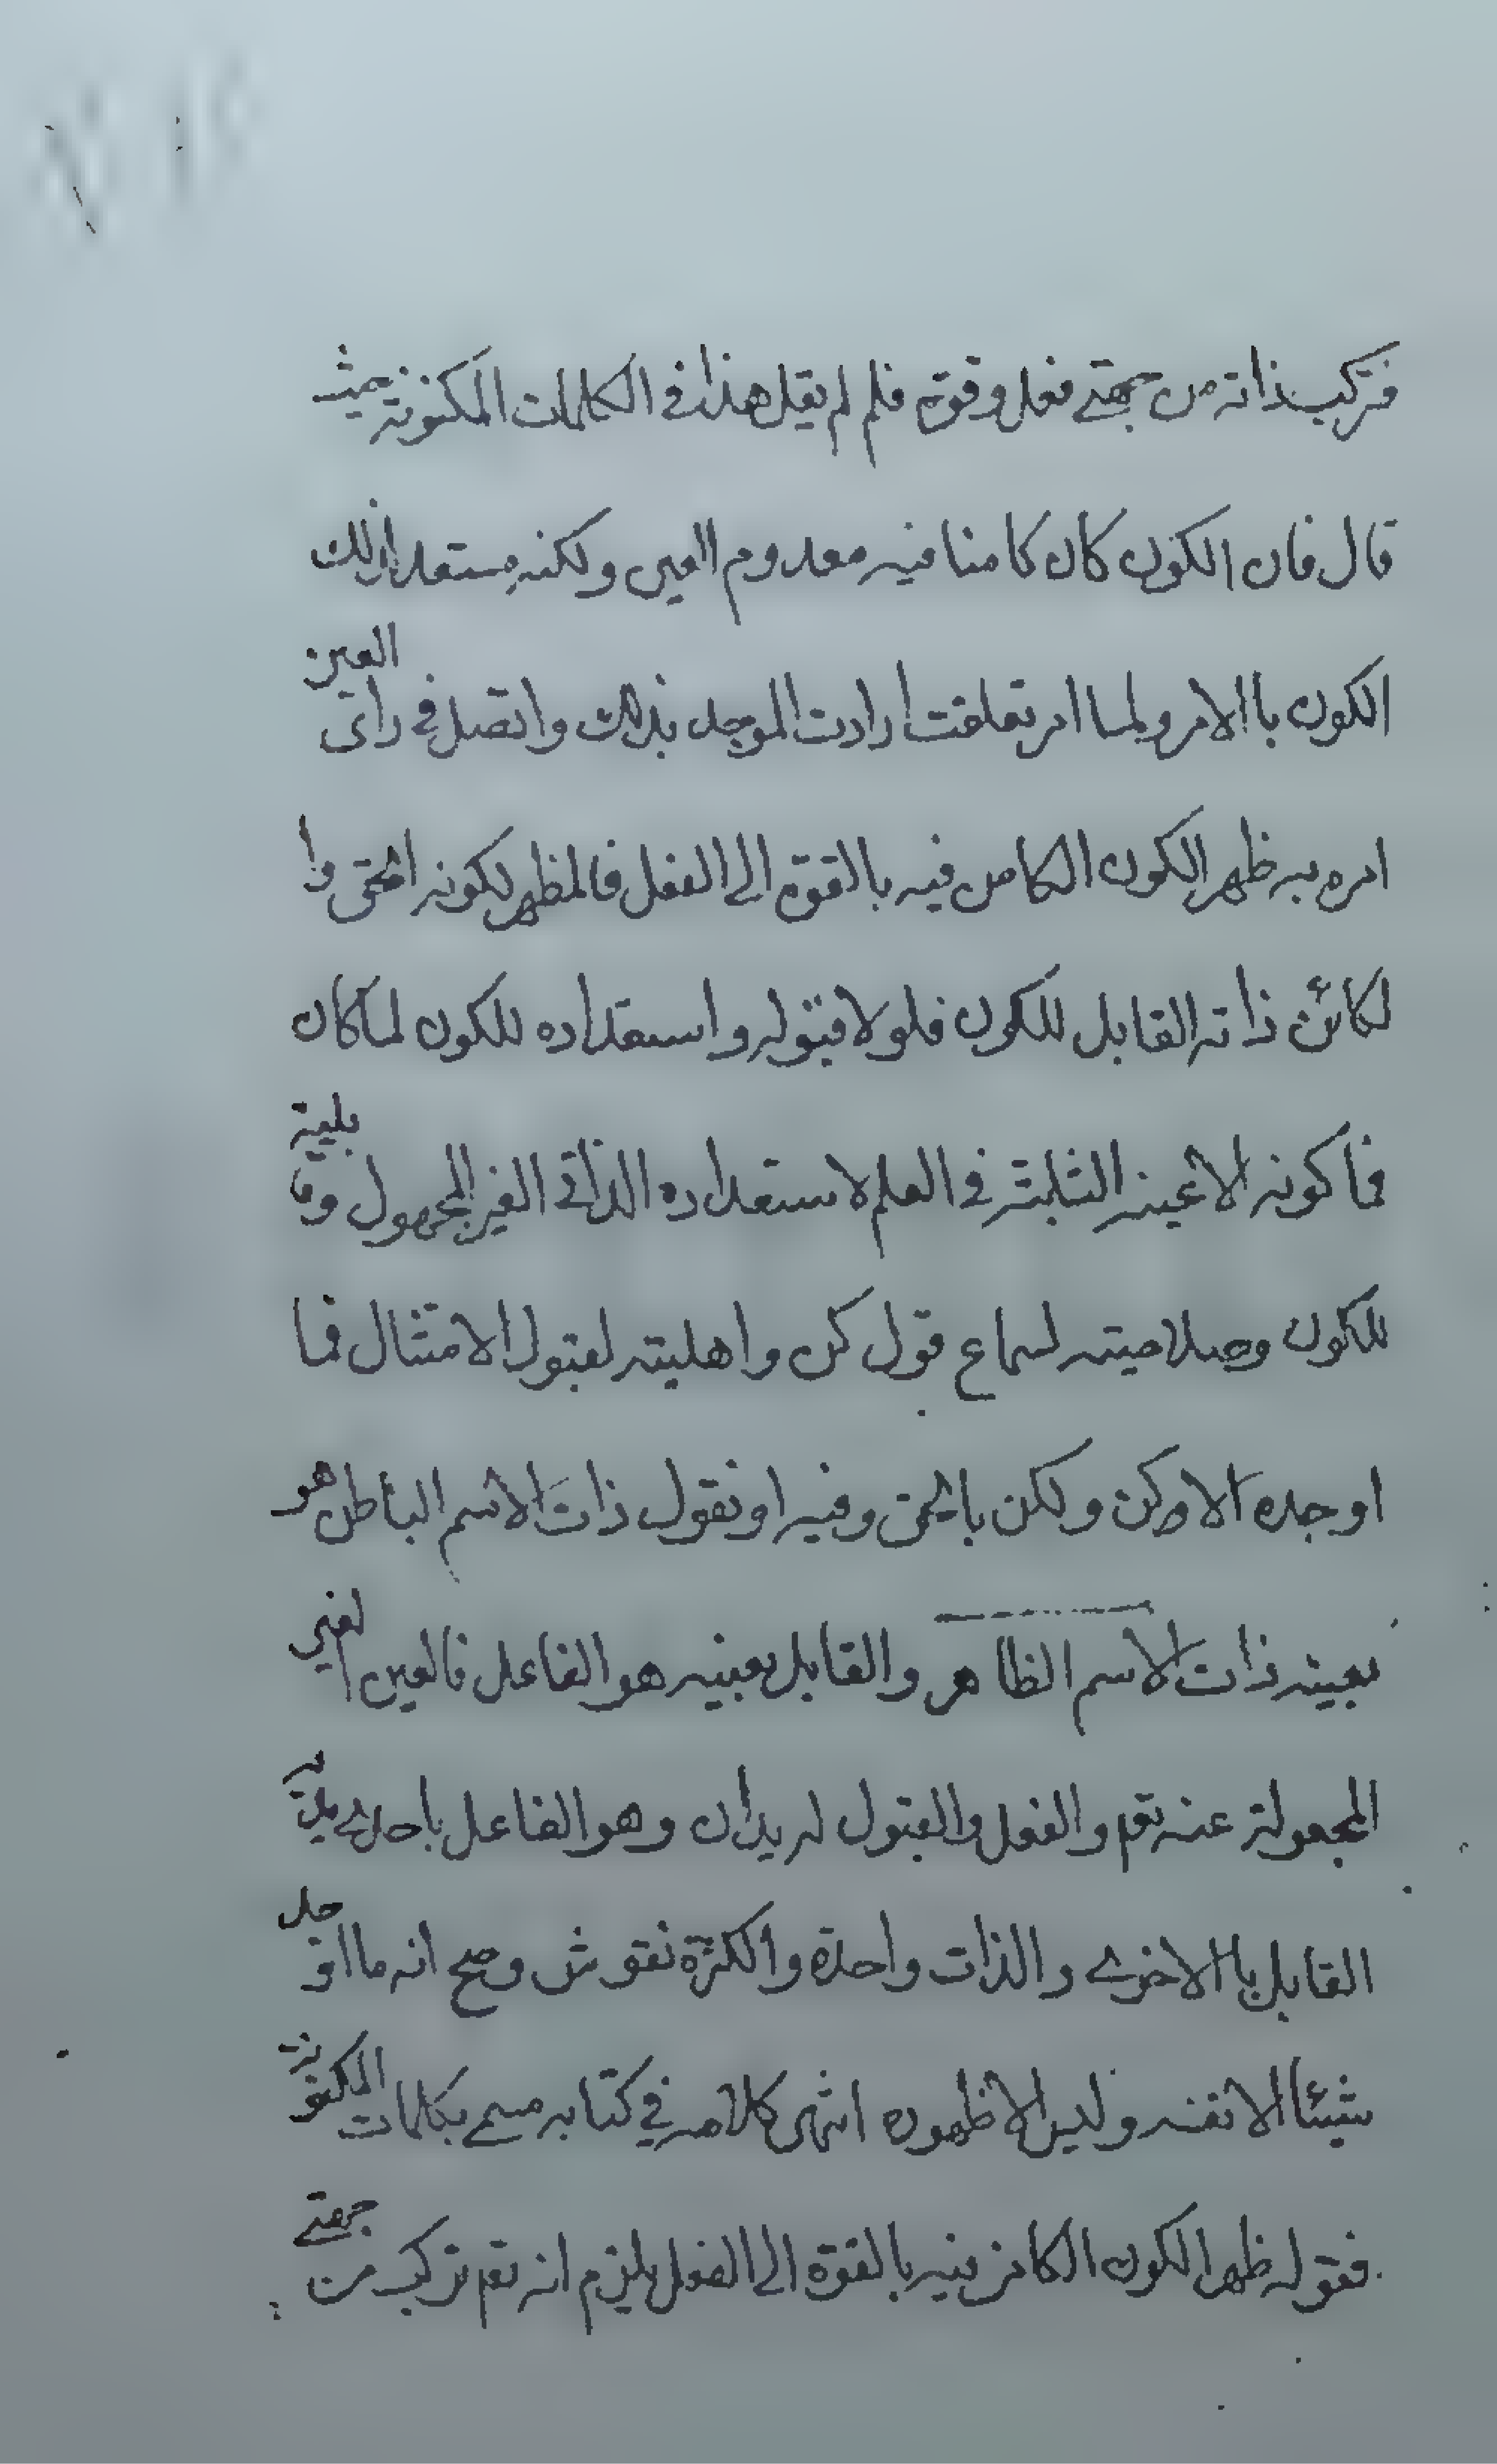 فتركب ذاته من جهتے فعل وقوة فلم لم يقل هذا في الكلمات المكنونة بحيث
قال فان الكون كان كامنا فيه معدوم العين ولكنه مستعد لذلك
الكون باالامر ولما امر تعلقت ارادت الموجد بذلك واتصل في رأى العين
امره به ظهر الكون الكامن فيه بالقوة الى الفعل فالمظهر لكونه الحق وا
لكائن ذاته القابل للكون فلولا قبوله واستعداده للكون لما كان
فما كونه الا عينه الثابتة في العلم لاستعداده الذاتي الغير المجهول وقابلية
للكون وصلاحيته لسماع قول كن واهليته لقبول الامتثال فما
اوجده الا هو كن ولكن بالحق وفيه او نقول ذات الاسم الباطن هو
بعينه ذات الاسم الظاهر والقابل بعينه هو الفاعل فالعين الغير
المجعولة عنه تعم والفعل والقبول له يدان وهو الفاعل باحدى يديه
القابل باالاخرى والذات واحدة والكثرة نقوش وصح انه ما اوجد
شيئا الا نفسه وليس الا ظهوره انتهى كلامه في كتابه مسمے بكلمات المكنونة
فقوله ظهر الكون الكامن فيه بالقوة الى الفعل يلزم انه تعم تركب من جهتے